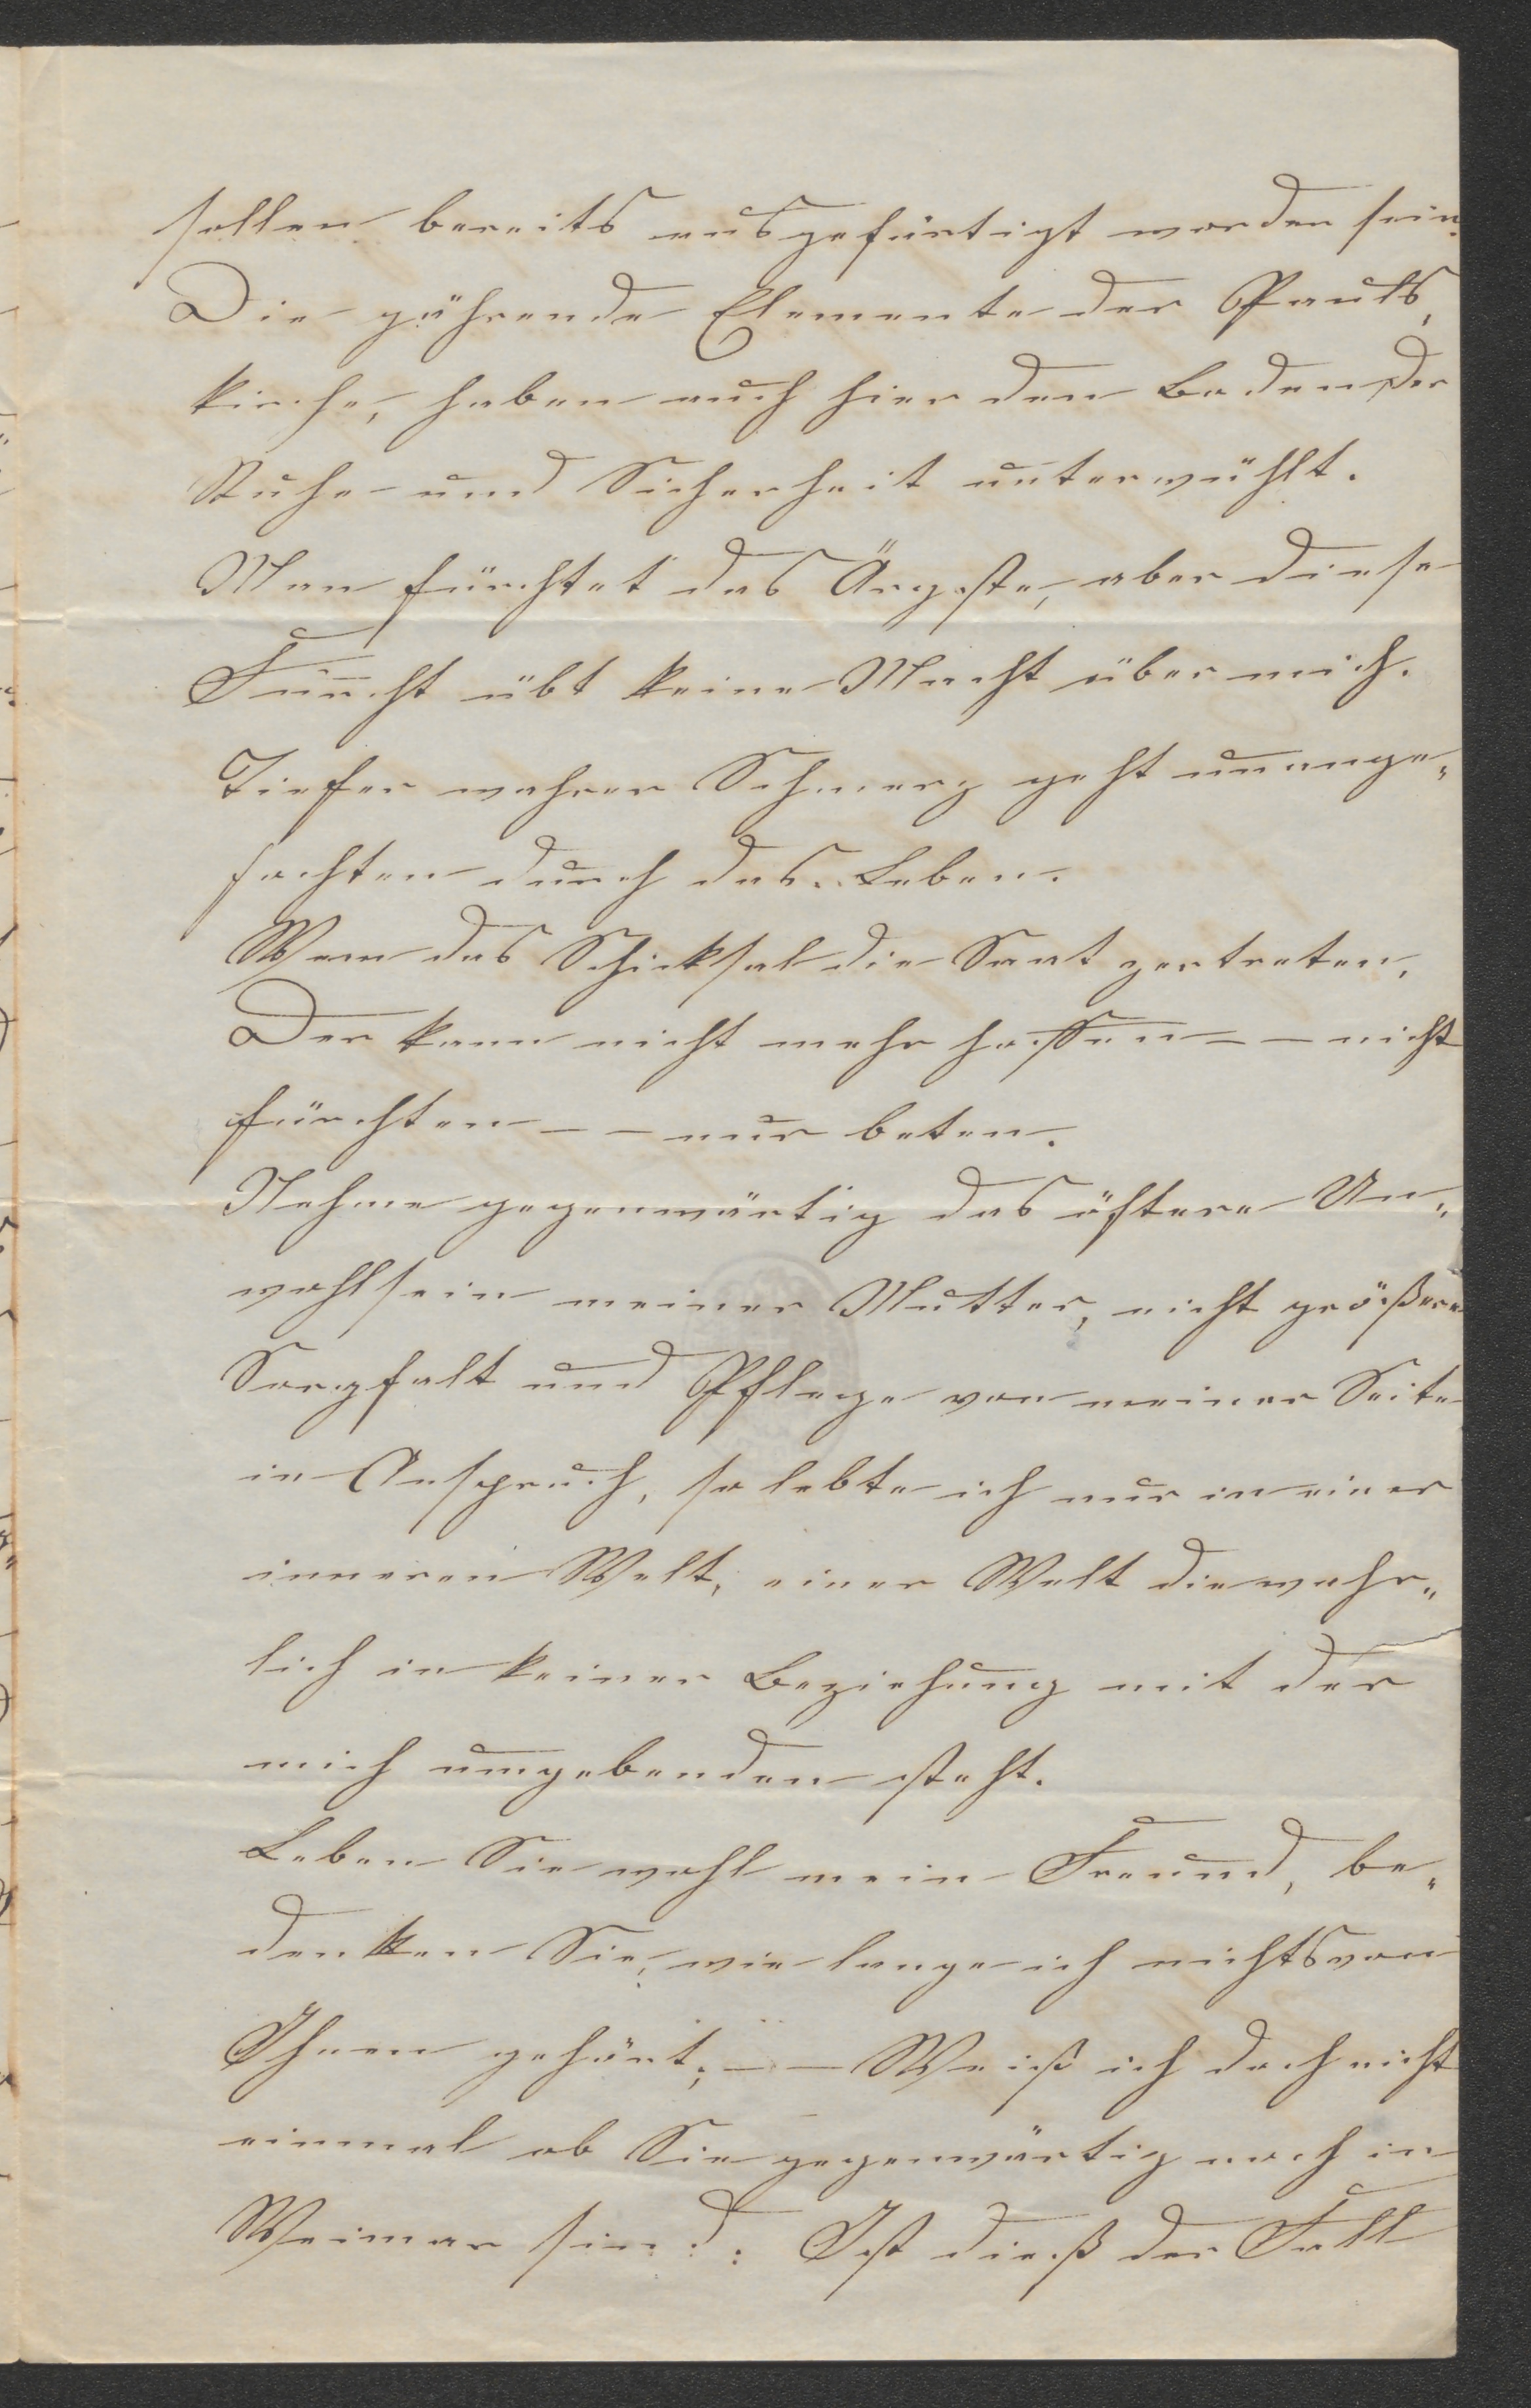 sollen bereits ausgefürtigt worden sein.
Die gährende Elemente der Pauls,
kirche, haben auch hier den Boden der
Ruhe und Sicherheit unterwühlt.
Man fürchtet das Ärgste, aber diese
Furcht übt keine Macht über mich.
Tiefer wahrer Schmerz geht unange„
fochten durch das Leben.
Wem das Schicksal die Saat zertreten,
Der kann nicht mehr hoffen — — nicht
fürchten — — nur beten.
Nehme gegenwärtig das öftere Un„
wohlsein meiner Mutter, nicht größere
Sorgfalt und Pflege von meiner Seite
in Anspruch, so lebte ich nur in einer
inneren Welt, einer Welt die wahr„
lich in keiner Beziehung mit der
mich umgebenden steht.
Leben Sie wohl mein Freund, be„
denken Sie, wie lange ich nichts von
Ihnen gehört; — — Weiß ich doch nicht
einmal ob Sie gegenwärtig noch in
Weimar sind: Ist dieß der Fall